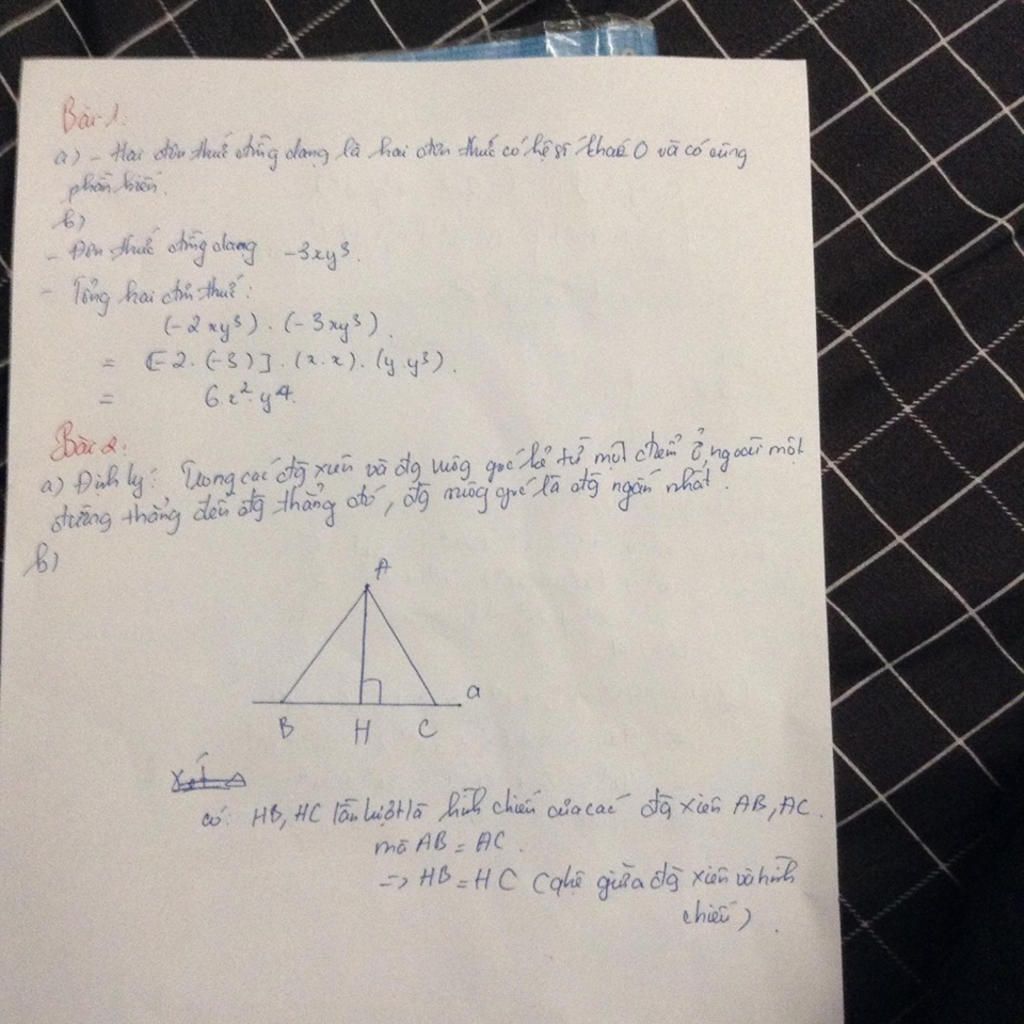 Bài 1:
a) - Hai đơn thức đồng dạng là hai đơn thức có hệ số khác 0 và có cùng
phần biến.
b)
- Đơn thức đồng dạng -3xy³.
- Tổng hai đơn thức:
(-2xy³) . (-3xy³).
= [-2. (-3)] . (x.x). (y.y³).
= 6.x².y4.
Bài 2:
a) Định lý: Trong các đg xiên và đg vuông góc kẻ từ một điểm ở ngoài một
đường thẳng đến đg thẳng đó, đg vuông góc là đg ngắn nhất.
b)
A
a
B H C
có: HB, HC lần lượt là hình chiếu của các đg xiên AB, AC.
mà AB = AC.
=> HB = HC (qhệ giữa đg xiên và hình
chiếu).